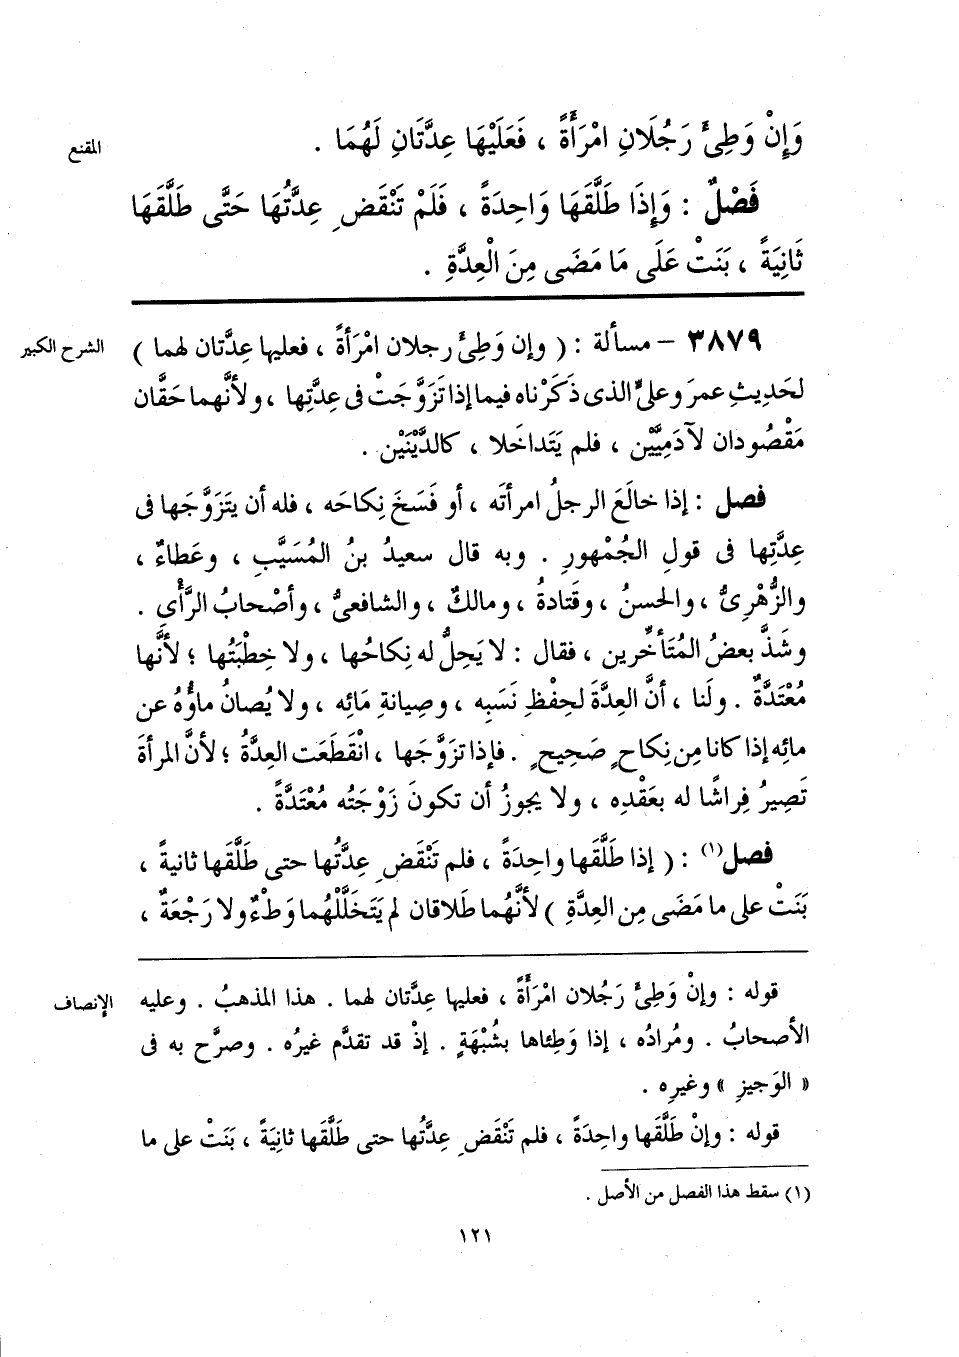 المقنع
وَإِنْ وَطِئَ رَجُلَانِ امْرَأَةً ، فَعَلَيْهَا عِدَّتَانِ لَهُمَا .
فَصْلٌ : وَإِذَا طَلَّقَهَا وَاحِدَةً ، فَلَمْ تَنْقَضِ عِدَّتُهَا حَتَّى طَلَّقَهَا
ثَانِيَةً ، بَنَتْ عَلَى مَا مَضَى مِنَ الْعِدَّةِ .
الشرح الكبير
٣٨٧٩ – مسألة : ( وإن وَطِئَ رجلان امْرَأَةً ، فعليها عِدَّتان لهما )
لحَدِيثِ عمرَ وعلىٍّ الذى ذَكَرْناه فيما إذا تَزَوَّجَتْ فى عِدَّتِها ، ولأنَّهما حَقَّان
مَقْصُودان لآدَمِيَّيْن ، فلم يَتَداخَلا ، كالدَّيْنَيْن .
فصل : إذا خالَعَ الرجلُ امرأتَه ، أو فَسَخَ نِكاحَه ، فله أن يتَزَوَّجَها فى
عِدَّتِها فى قولِ الجُمْهورِ . وبه قال سعيدُ بنُ المُسَيَّبِ ، وعَطاءٌ ،
والزُّهْرِىُّ ، والحسنُ ، وقَتادةُ ، ومالكٌ ، والشافعىُّ ، وأصْحابُ الرَّأْىِ .
وشَذَّ بعضُ المُتَأخِّرين ، فقال : لا يَحِلُّ له نِكاحُها ، ولا خِطْبَتُها ؛ لأنَّها
مُعْتَدَّةٌ . ولَنا ، أنَّ العِدَّةَ لحِفْظِ نَسَبِه ، وصِيانةِ مَائِه ، ولا يُصانُ ماؤُهُ عن
مائِه إذا كانا مِن نِكاحٍ صَحِيحٍ . فإذا تزَوَّجَها ، انْقَطَعَت العِدَّةُ ؛ لأنَّ المرأةَ
تَصِيرُ فِراشًا له بعَقْدِه ، ولا يجوزُ أن تكونَ زَوْجَتُه مُعْتَدَّةً .
فصل(١) : ( إذا طَلَّقَها واحِدَةً ، فلم تَنْقَضِ عِدَّتُها حتى طَلَّقَها ثانيةً ،
بَنَتْ على ما مَضَى مِن العِدَّةِ ) لأنَّهُما طَلاقان لم يَتَخَلَّلْهُما وَطْءٌ ولا رَجْعَةٌ ،
الإنصاف
قوله : وإنْ وَطِئَ رَجُلان امْرَأَةً ، فعليها عِدَّتان لهما . هذا المذهبُ . وعليه
الأصحابُ . ومُرادُه ، إذا وَطِئاها بشُبْهَةٍ . إذْ قد تقدَّم غيرُه . وصرَّح به فى
« الوَجيزِ » وغيرِه .
قوله : وإنْ طَلَّقَها واحِدَةً ، فلم تَنْقَضِ عِدَّتُها حتى طَلَّقَها ثانِيَةً ، بَنَتْ على ما
(١) سقط هذا الفصل من الأصل .
١٢١